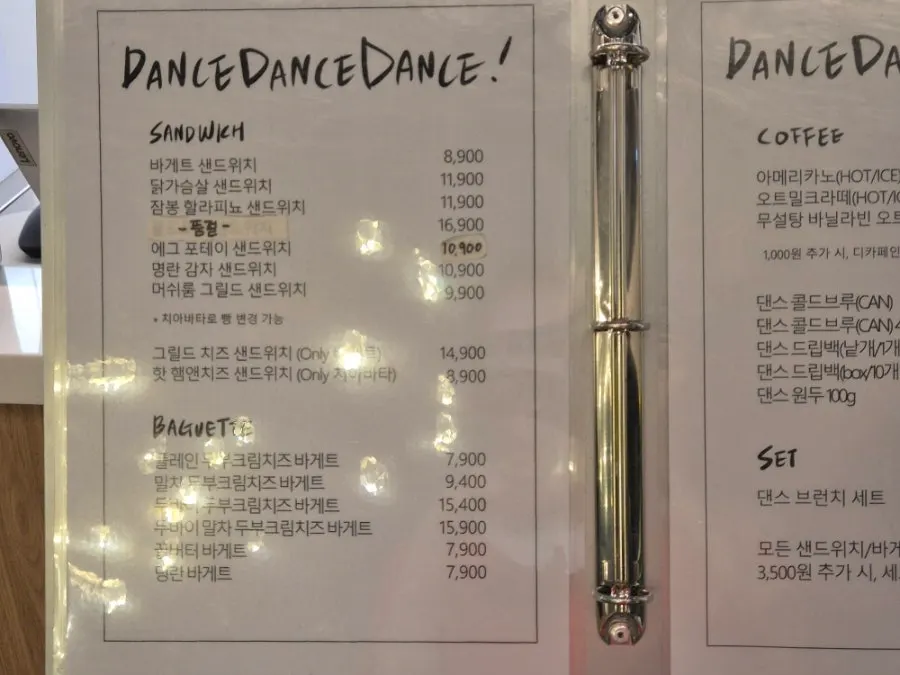 DANCEDANCEDANCE!
SANDWICH
바게트 샌드위치 8,900
닭가슴살 샌드위치 11,900
잠봉 할라피뇨 샌드위치 11,900
-품절- 16,900
에그 포테이 샌드위치 10,900
명란 감자 샌드위치 10,900
머쉬룸 그릴드 샌드위치 9,900
* 치아바타로 빵 변경 가능
그릴드 치즈 샌드위치 (Only 14,900
핫 햄앤치즈 샌드위치 (Only 치아바타) 8,900
BAGUETTE
플레인 두부크림치즈 바게트 7,900
말차 두부크림치즈 바게트 9,400
두바이 두부크림치즈 바게트 15,400
두바이 말차 두부크림치즈 바게트 15,900
꿀버터 바게트 7,900
명란 바게트 7,900
DANCEDA
COFFEE
아메리카노(HOT/ICE)
오트밀크라떼(HOT/IC
무설탕 바닐라빈 오트
1,000원 추가 시, 디카페인
댄스 콜드브루(CAN)
댄스 콜드브루(CAN) 4
댄스 드립백(낱개/1개
댄스 드립백(box/10개
댄스 원두 100g
SET
댄스 브런치 세트
모든 샌드위치/바게
3,500원 추가 시, 세
lenovo